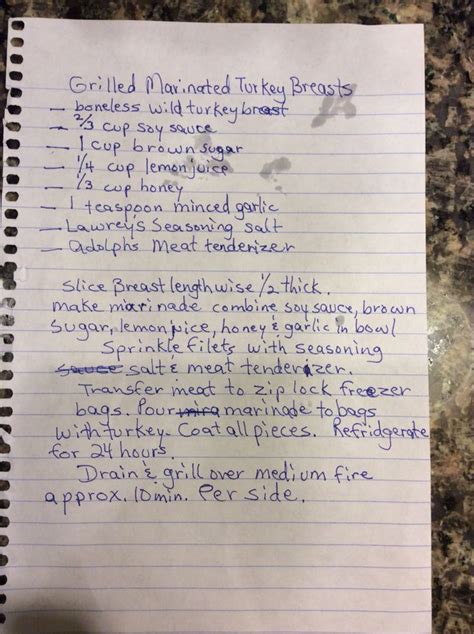 Grilled Marinated Turkey Breasts
— boneless wild turkey breast
— 2/3 cup soy sauce
— 1 cup brown sugar
— 1/4 cup lemon juice
— 1/3 cup honey
— 1 teaspoon minced garlic
— Lawrey's Seasoning salt
— Adolphs Meat tenderizer
Slice Breast lengthwise 1/2 thick.
make marinade combine soy sauce, brown
sugar, lemon juice, honey & garlic in bowl
Sprinkle filets with seasoning
sauce salt & meat tenderizer.
Transfer meat to zip lock freezer
bags. Pour mira marinade to bags
with turkey. Coat all pieces. Refridgerate
for 24 hours.
Drain & grill over medium fire
approx. 10 min. Per side.